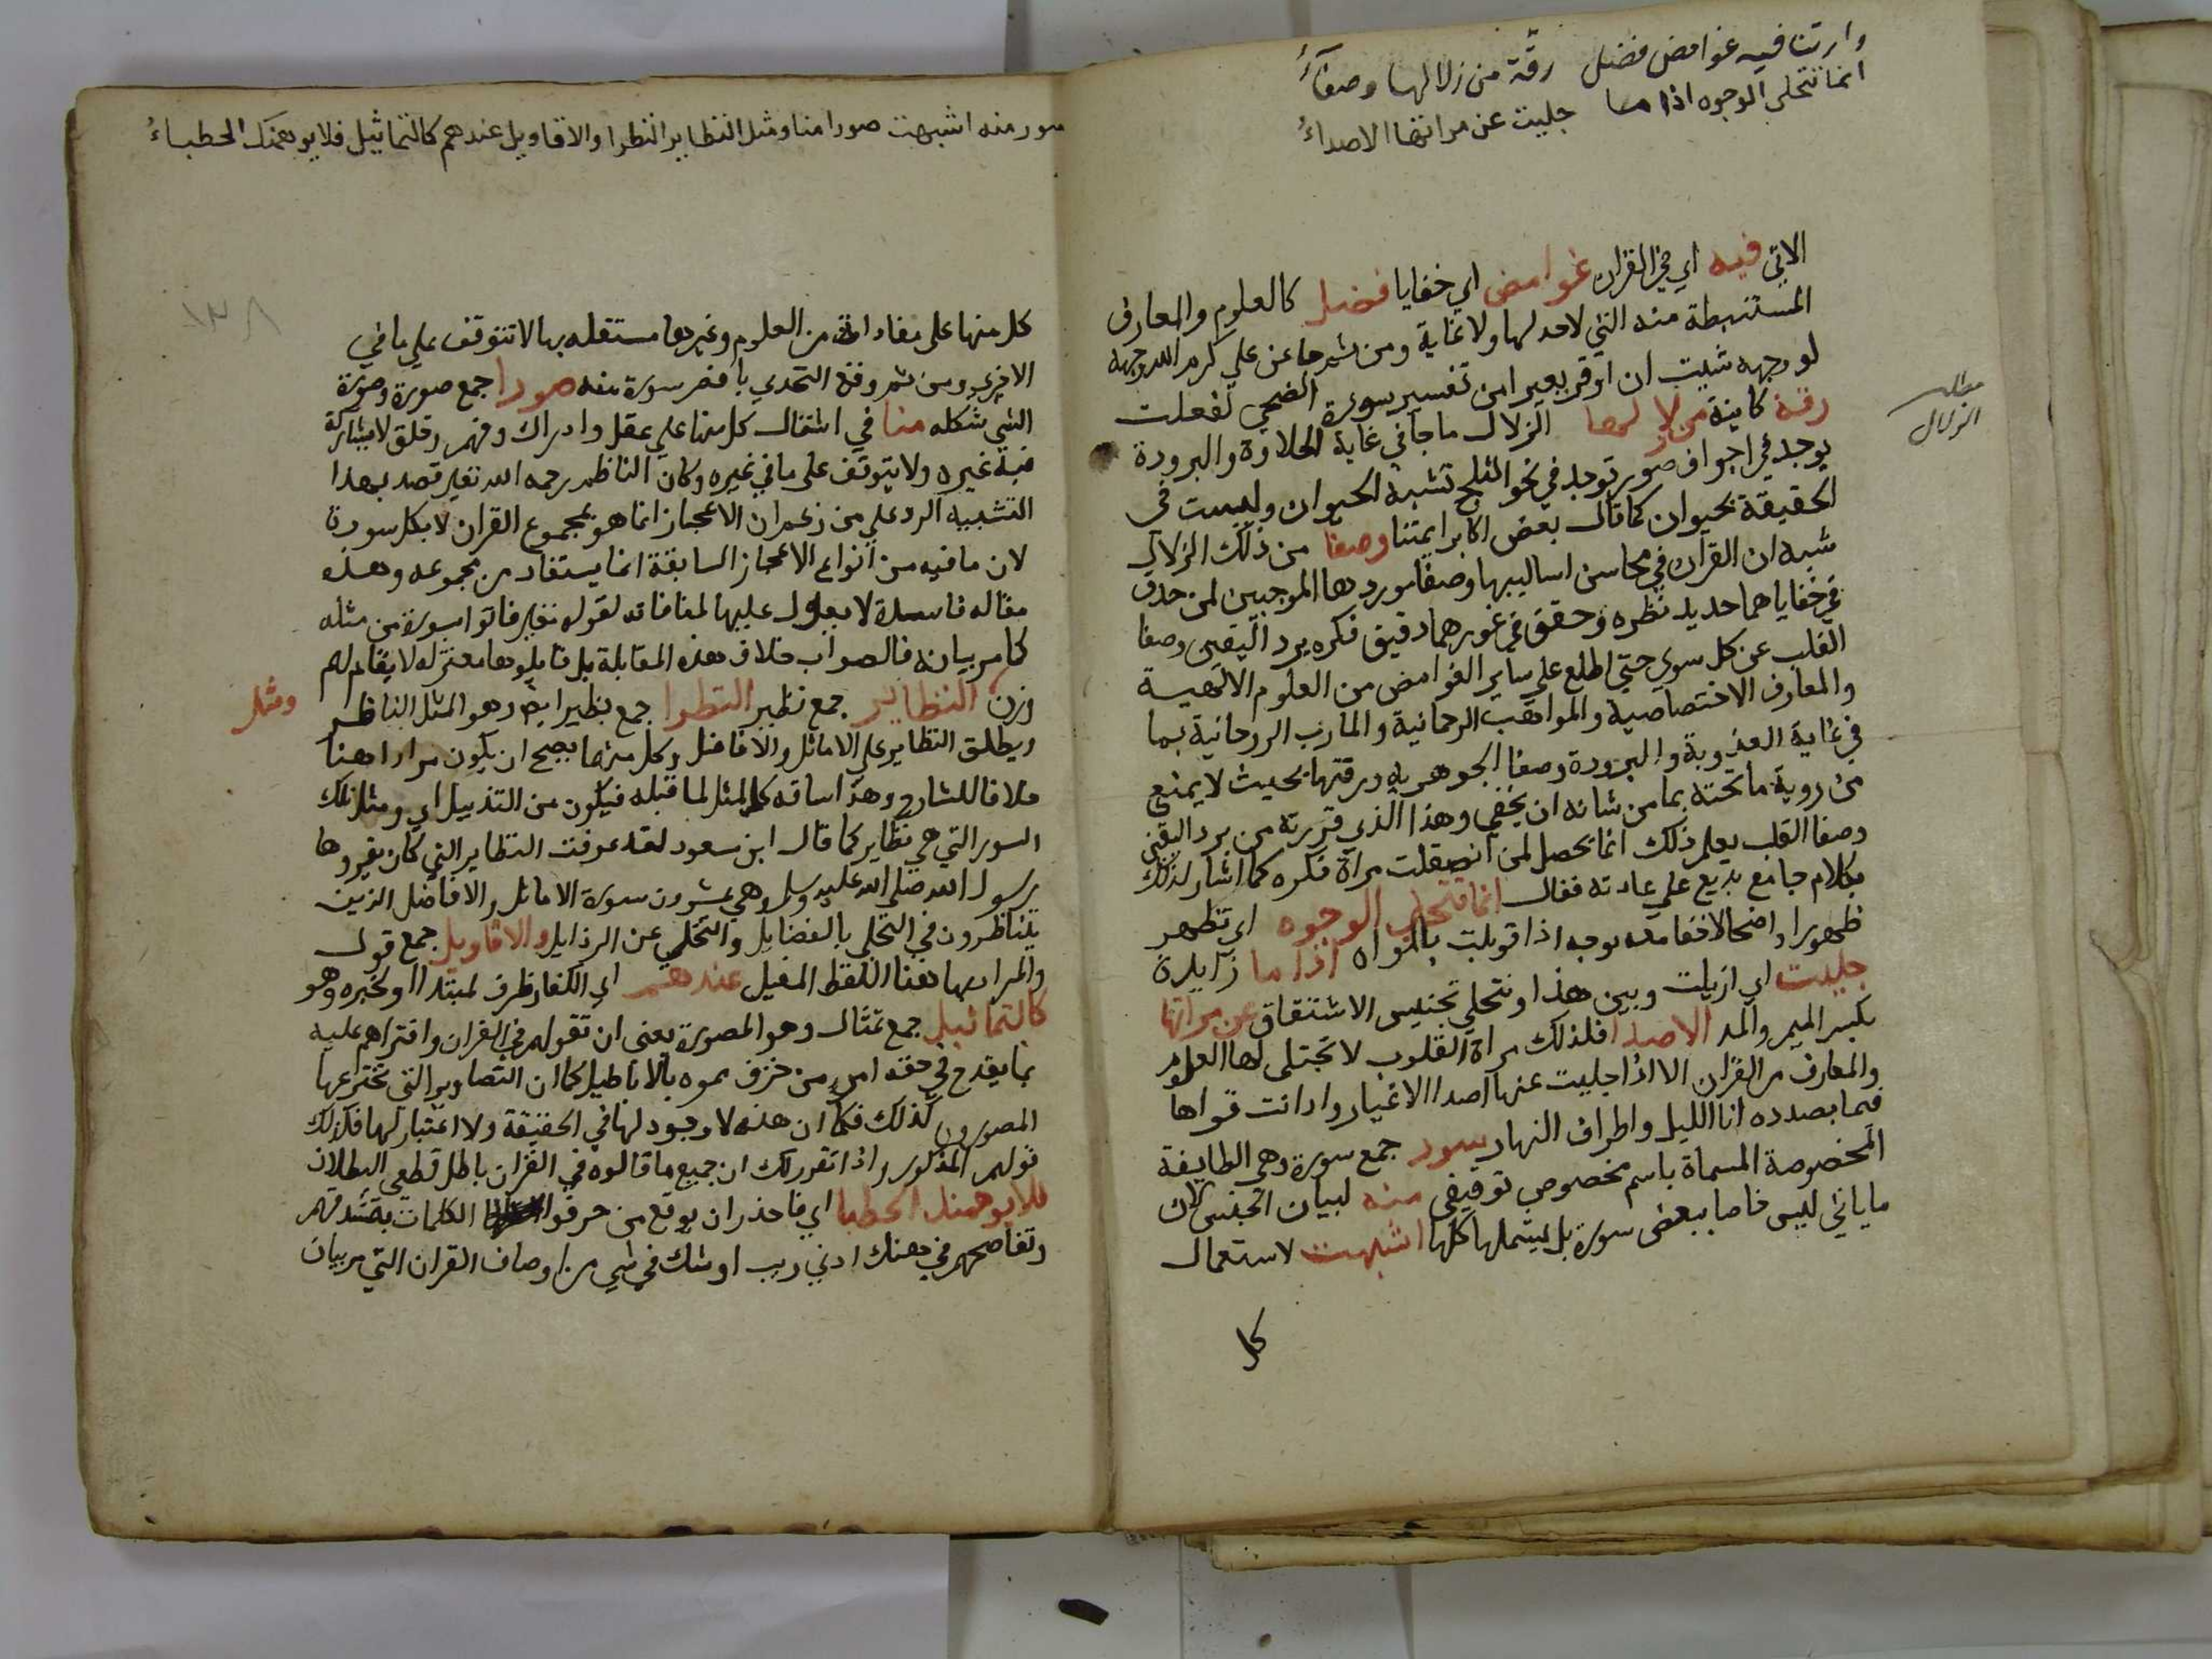 وارتنا فيه غوامض فضل رقّة من زلالها وصفآءُ
انما تتجلى الوجوه اذا ما جليت عن مراتها الاصداءُ
الاتي فيه اي في القران غوامض اي خفايا فضل كالعلوم والمعارف
المستنبطة منه التي لا حد لها ولا غاية ومن ثم جا عن علي كرم الله وجهه
لو وجهه شيت ان اوقر بعيرا من تفسير سورة الضحي لفعلت
رقة كاينة من زلالها الزلال ما جا في غاية الحلاوة والبرودة
مطلب الزلال
يوجد في اجواف صور توجد في نحو الثلج تشبه الحيوان وليست في
الحقيقة بحيوان كما قال بعض اكابر ايمتنا وصفا من ذلك الزلال
شبه ان القران في محاسن اساليبها وصفا موردها الموجبين لمن حدق
في خفاياهما حديد نظره وحقق في غورهما دقيق فكره برد اليقين وصفا
القلب عن كل سوي حتي اطلع علي ساير الغوامض من العلوم الالهية
والمعارف الاختصاصية والمواهب الرحمانية والمارب الروحانية بما
في غاية العذوبة والبرودة وصفا الجوهرية ورقتها بحيث لا يمنع
من روية ما تحته بما من شانه ان يخفي وهذا الذي قررته من برد اليقين
وصفا القلب يعلم ذلك انما يحصل لمن انصقلت مراة فكره كما اشار لذلك
بكلام جامع بديع علي عادته فقال انما تتجلي الوجوه اي تظهر
ظهورا واضحا لا خفا معه بوجه اذا قوبلت بالمراه اذا ما زايدة
جليت اي ازيلت وبين هذا وتتجلي تجنيس الاشتقاق عن مراتها
بكسر الميم والمد الاصدا فلذلك مراة القلوب لا تجتلي لها العلوم
والمعارف من القران الا اذا جليت عنها اصدا الاغيار وادانت قواها
فيما بصدده انا الليل واطراف النهار سور جمع سورة وهي الطايفة
المخصوصة المسماة باسم مخصوص توقيفي منه لبيان الجنس لان
ما ياتي ليس خاصا ببعض سوره بل يشملها كلها اشبهت لاستعمال
كل
سور منه اشبهت صورا منا ومثل النظاير النظرا والاقاويل عندهم كالتماثيل فلا يوهمنك الخطباءُ
١٣٨
كل منها على مفادات من العلوم وغيرها مستقله بها لا تتوقف علي ما في
الاخري ومن ثم وقع التحدي باقصر سورة منه صورا جمع صورة وصورة
الشي شكله منا في اشتمال كل منها علي عقل وادراك وفهم وخلق لا يشاركه
فيه غيره ولا يتوقف على ما في غيره وكان الناظم رحمه الله تعالي قصد بهذا
التشبيه الرد علي من زعم ان الاعجاز انما هو بمجموع القران لا بكل سورة
لان ما فيه من انواع الاعجاز السابقة انما يستفاد من مجموعه وهذه
مقاله فاسدة لا يعول عليها لمنافاته لقوله تعالي فاتوا بسورة من مثله
كما مر بيانه فالصواب خلاف هذه المقابلة بل قايلوها معتزله لا يقام لهم
وزن النظاير جمع نظير النظرا جمع نظير ايضا وهو المثل الناظر
ومثل
ويطلق النظاير علي الاماثل والافاضل وكل منهما يصح ان يكون مرادا هنا
خلافا للشارح وهذا ساقه كالمثل لما قبله فيكون من التذييل اي ومثل تلك
السور التي هي نظاير كما قال ابن مسعود لقد عرفت النظاير التي كان يقروها
رسول الله صلي الله عليه وسلم وهي عشرون سورة الاماثل والافاضل الذين
يتناظرون في التحلي بالفضايل والتخلي عن الرذايل والاقاويل جمع قول
والمراد بها هنا اللفظ المفيل عندهم اي الكفار ظرف لمبتدا او لخبره وهو
كالتماثيل جمع تمثال وهو المصورة يعني ان تقولهم في القران وافتراهم عليه
بما يقدح في حقه امر من خزف مموه بالاباطيل كما ان التصاوير التي تخترعها
المصورون كذلك فكما ان هذه لا وجود لها في الحقيقة ولا اعتبار لها فكذلك
قولهم المذكور واذا تقرر لك ان جميع ما قالوه في القران باطل قطعي البطلان
فلا يوهمنك الخطبا اي فاحذر ان يوقع من حرفوا الكلمات بتشدقهم
وتفاصحهم في ذهنك ادني ريب او شك في شي من اوصاف القران التي مر بيان